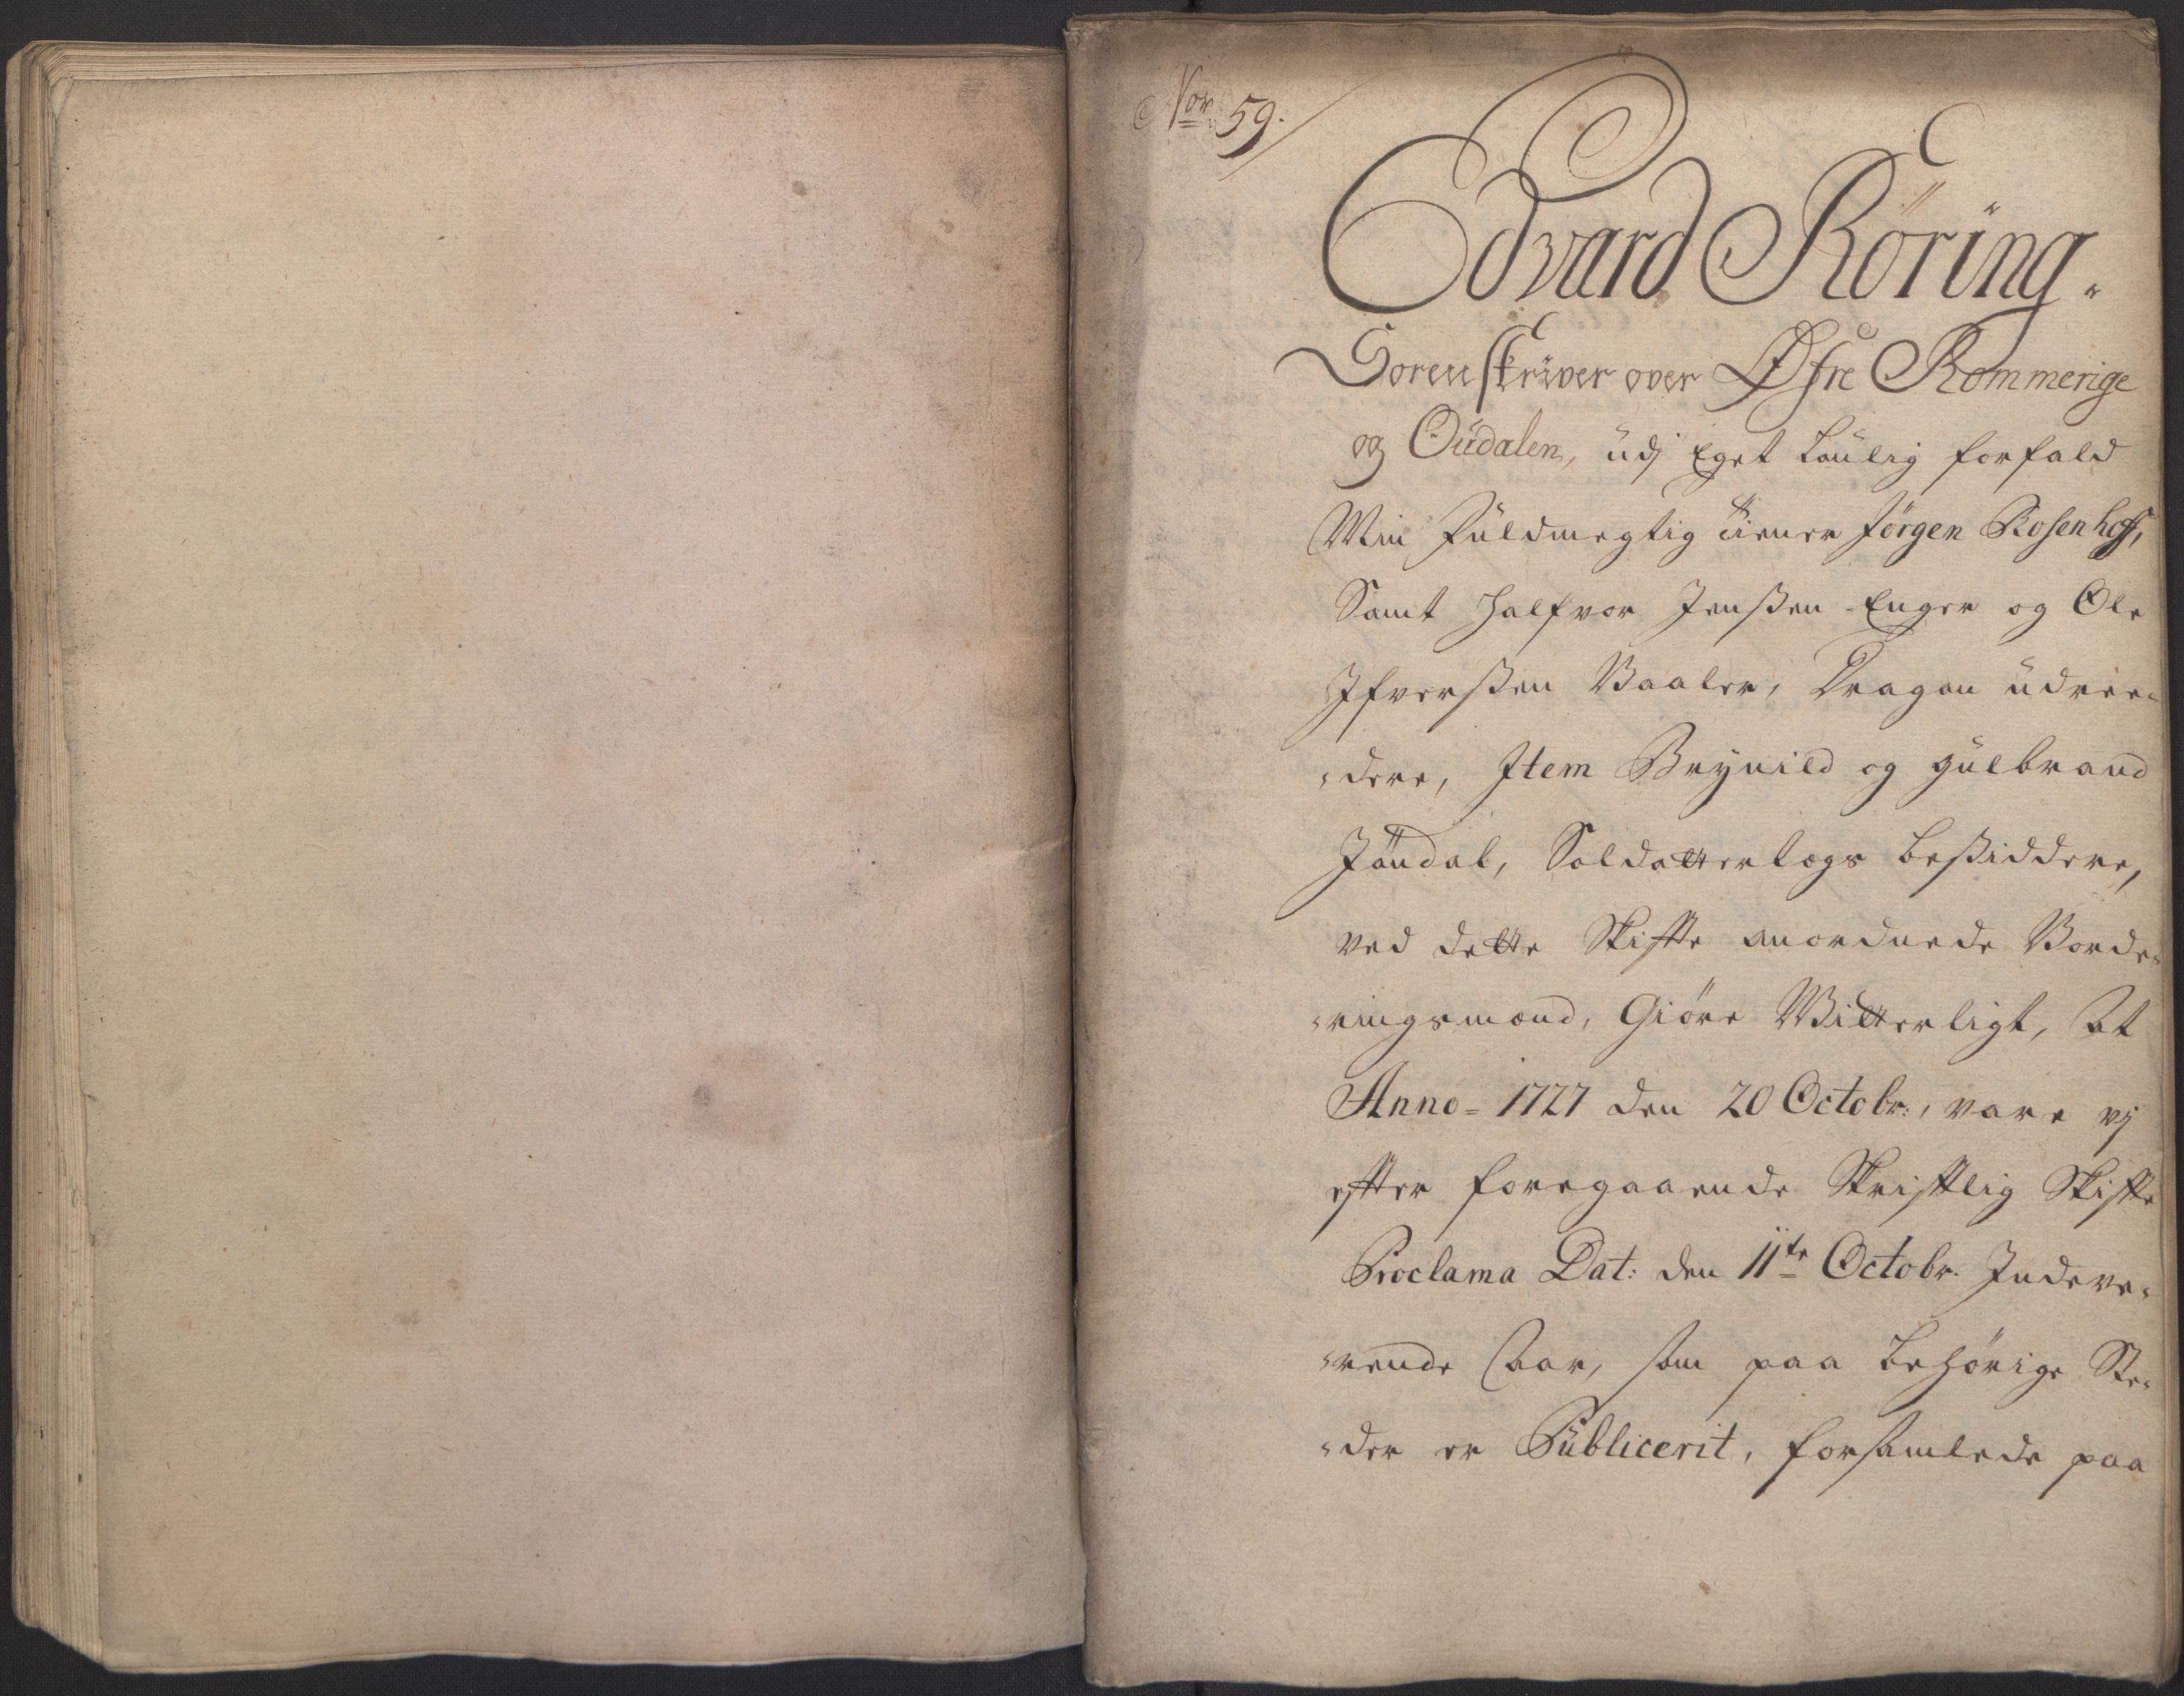 Nor 59.
Edvard Röring.
Sorenskriver over Øfre Rommerige
og Oudalen, üdj Eget Laülig forfald
Min Füldmegtig tiener Jörgen Rosenhoff,
Samt Halfvor Jenßen Enger og Ole
Ifverßen Baaler, Dragon üdree-
-dere, Item Brÿnild og gülbrand
Jöndal, Soldatterlegs beßiddere,
ved dette Skiffte anordnede Vorde-
-ringsmænd, Giöre Witterligt, At
Anno- 1727 den 20 Octobr:, vare vj
effter foregaaende Skrifftlig Skiffte
Proclama Dat: den 11te Octobr. Indeve-
-rende Aar, som paa behörige Ste-
-der er Püblicerit, forsamlede paa